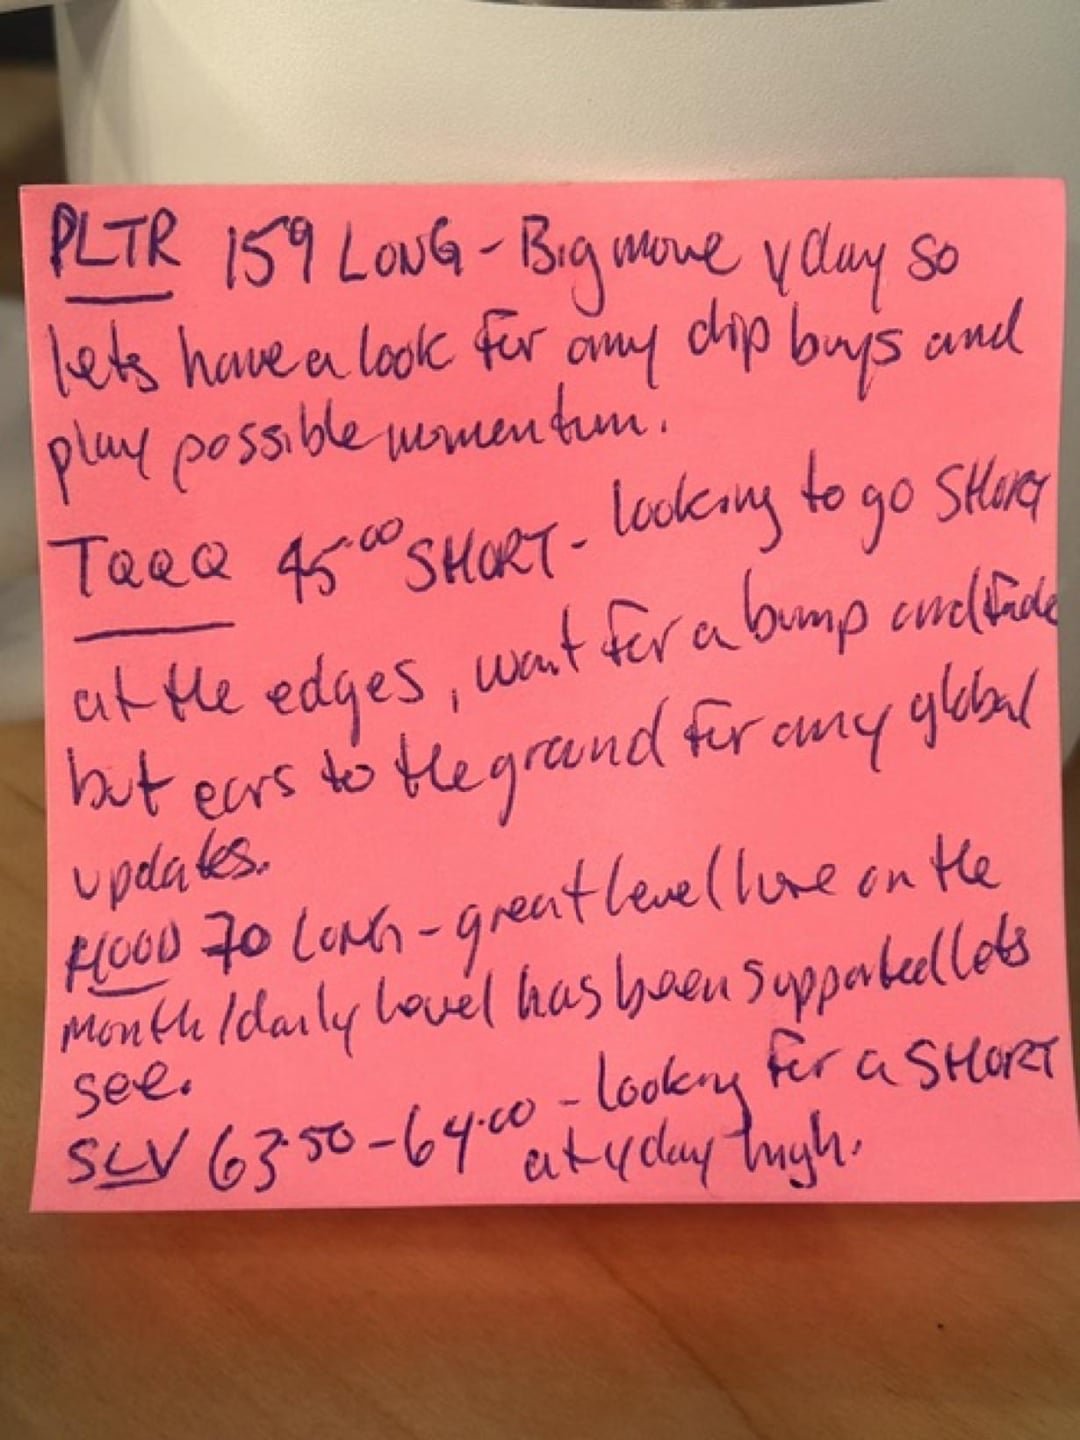 PLTR 159 LONG - Big move yday so
lets have a look for any dip buys and
play possible momentum.
TQQQ 45.00 SHORT - looking to go SHORT
at the edges, wait for a bump and fade
but ears to the ground for any global
updates.
HOOD 70 LONG - great level here on the
month/daily level has been supported lets
see.
SLV 63.50 - 64.00 - looking for a SHORT
at yday high.